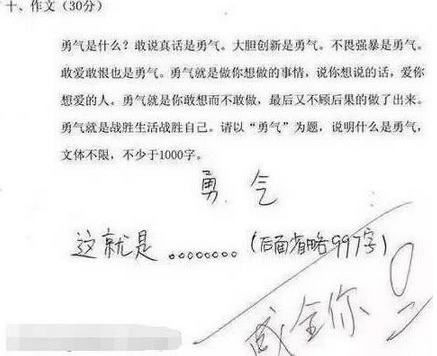 十、作文(30分)
勇气是什么？敢说真话是勇气。大胆创新是勇气。不畏强暴是勇气。
敢爱敢恨也是勇气。勇气就是做你想做的事情，说你想说的话，爱你
想爱的人。勇气就是你敢想而不敢做，最后又不顾后果的做了出来。
勇气就是战胜生活战胜自己。请以“勇气”为题，说明什么是勇气，
文体不限，不少于1000字。
勇 气
这就是........(后面省略997字)
成全你 0